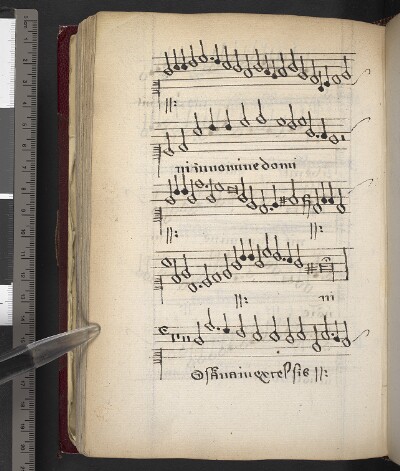 ni in nomine domi
ni
Osanna in excelsis